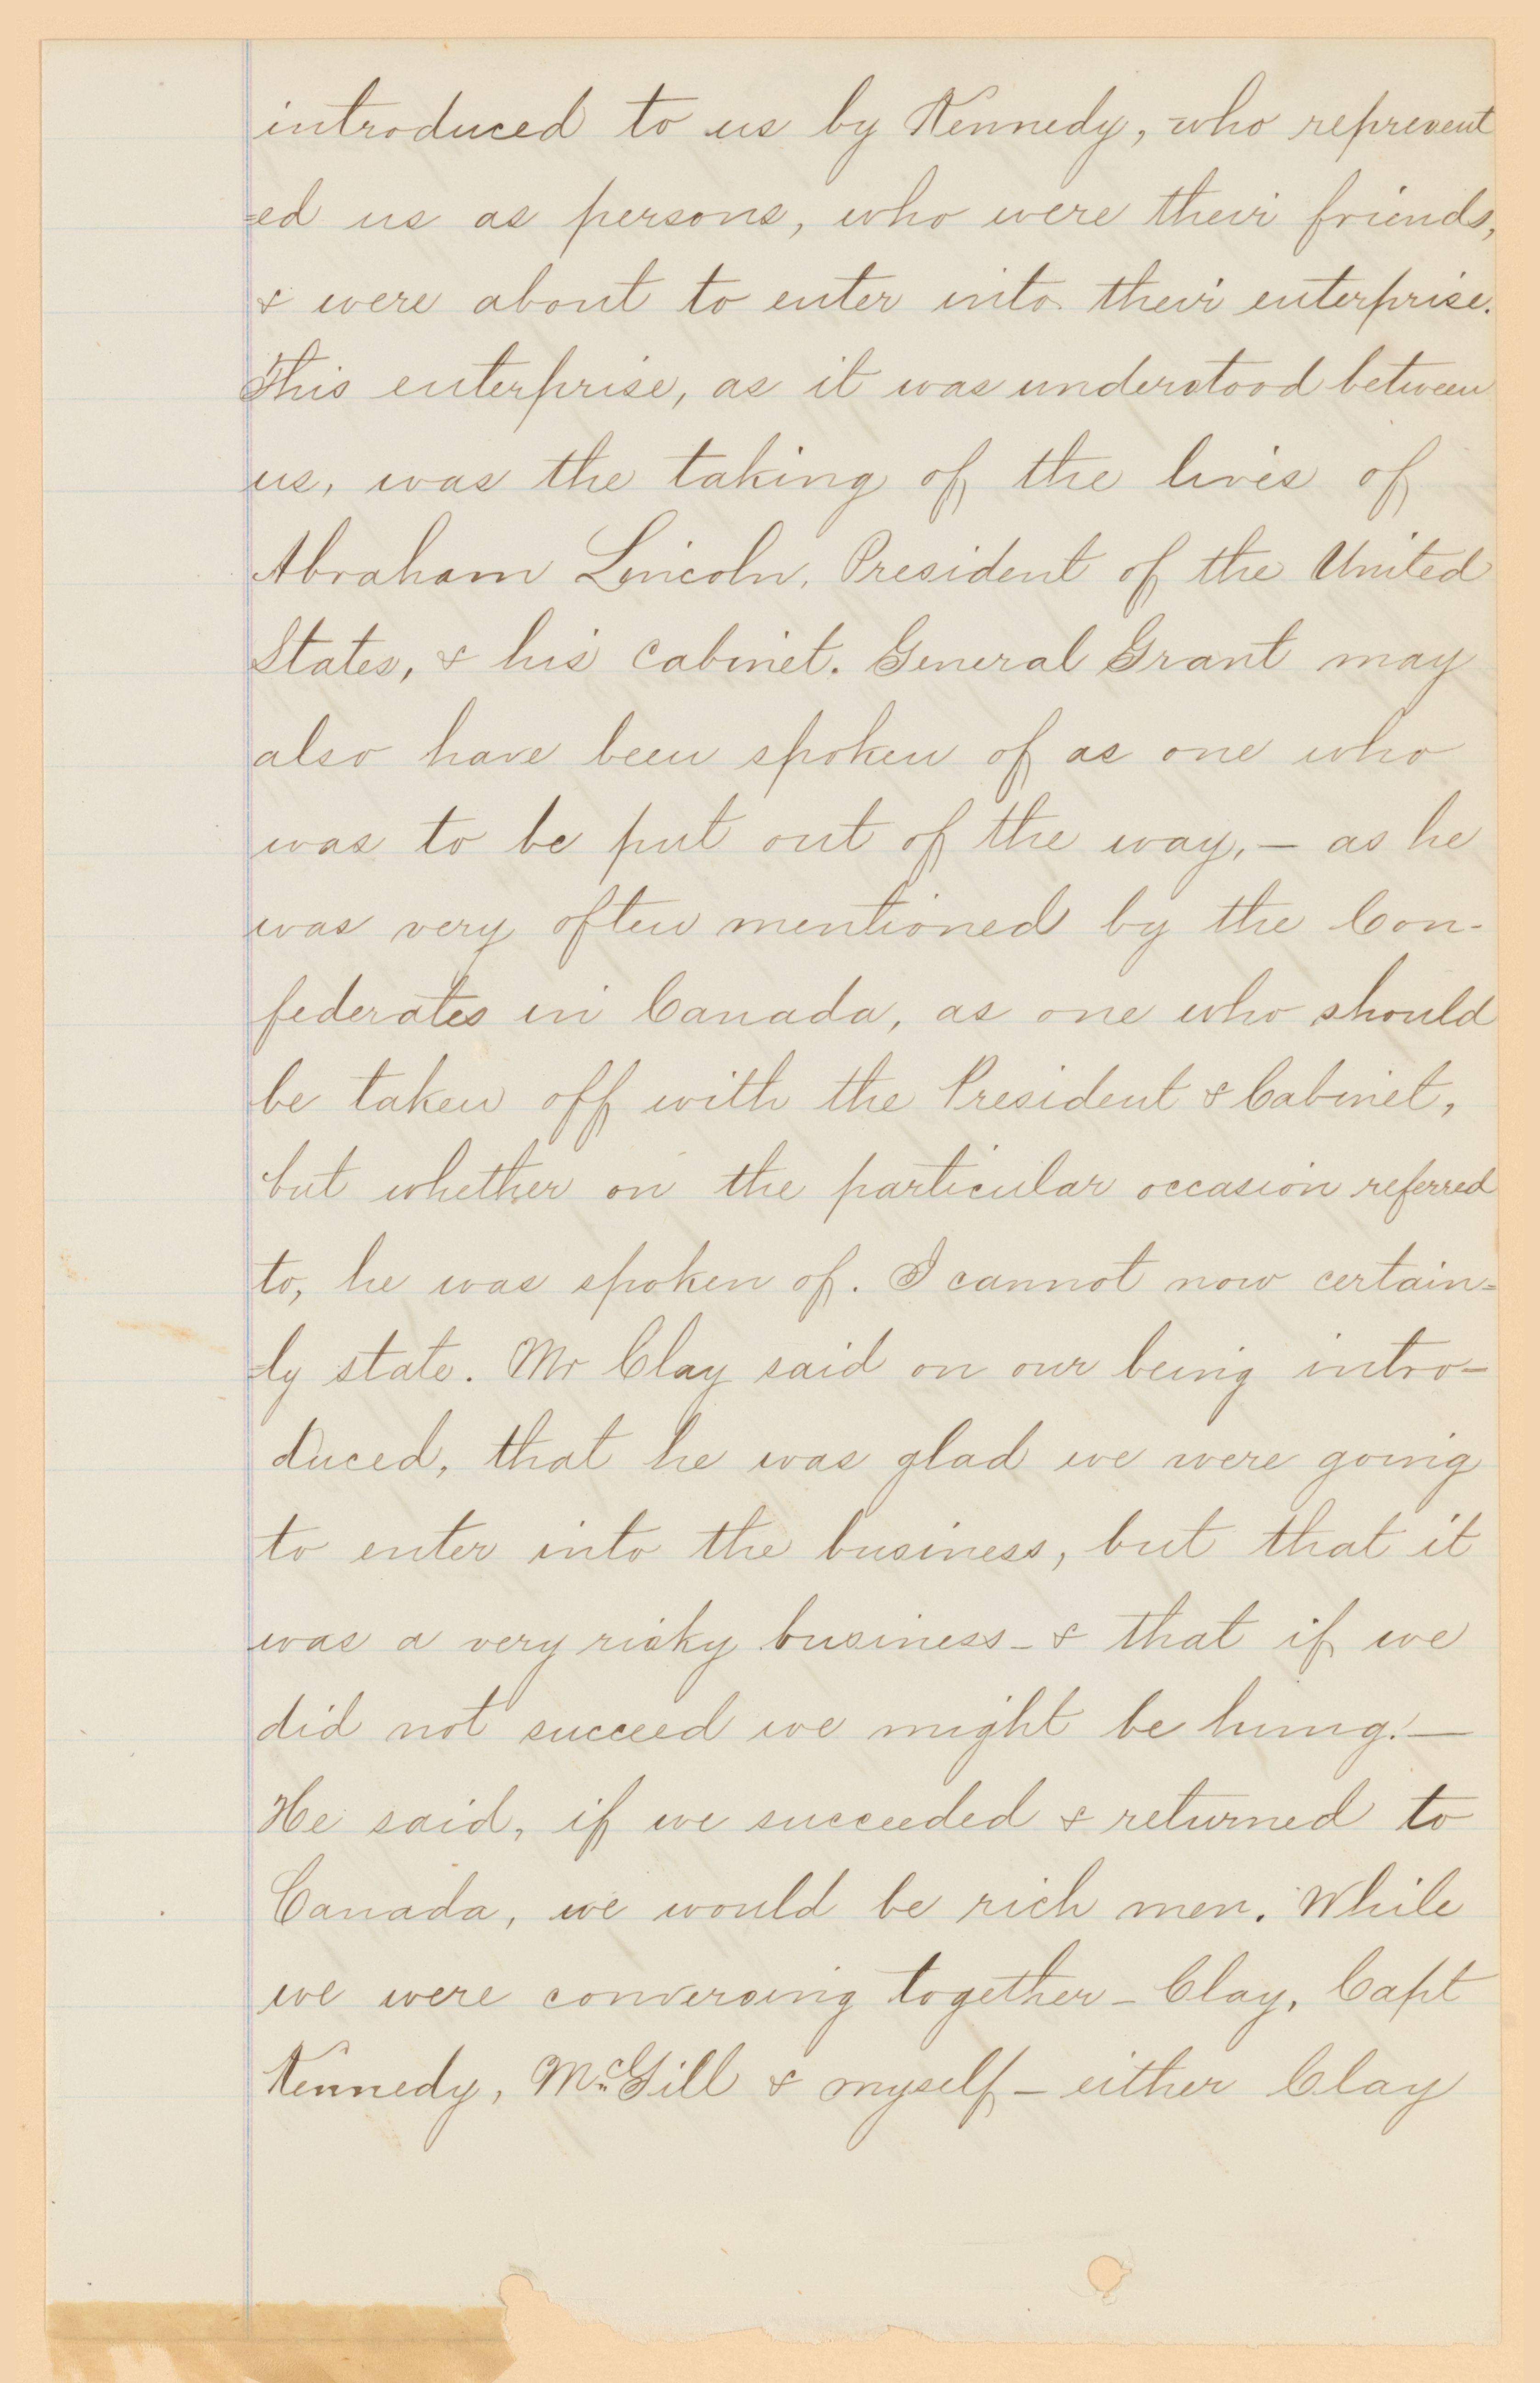 introduced to us by Kennedy, who represent
=ed us as persons, who were their friends,
& were about to enter into their enterprise.
This enterprise, as it was understood between
us, was the taking of the lives of
Abraham Lincoln, President of the United
States, & his Cabinet. General Grant may
also have been spoken of as one who
was to be put out of the way, — as he
was very often mentioned by the Con-
federates in Canada, as one who should
be taken off with the President & Cabinet,
but whether on the particular occasion referred
to, he was spoken of. I cannot now certain=
=ly state. Mr Clay said on our being intro-
duced, that he was glad we were going
to enter into the business, but that it
was a very risky business - & that if we
did not succeed we might be hung! —
He said, if we succeeded & returned to
Canada, we would be rich men. While
we were conversing together - Clay, Capt
Kennedy, McGill & myself - either Clay